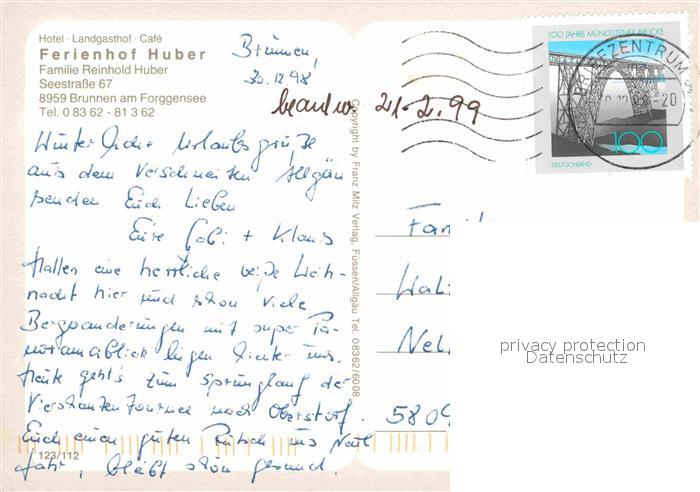 Hotel · Landgasthof · Café
Ferienhof Huber
Familie Reinhold Huber
Seestraße 67
8959 Brunnen am Forggensee
Tel. 0 83 62 - 81 3 62
Brunnen,
30.12.98
beantw. 21.2.99
100 JAHRE MÜNGSTENER BRÜCKE
100
DEUTSCHLAND
BRIEFZENTRUM
-20
Winterliche Urlaubsgrüße
aus dem verschneiten Allgäu
senden Euch Lieben
Eure Gabi + Klaus
Hatten eine herrliche weiße Weih-
nacht hier und schon viele
Bergwanderungen mit super Pa-
noramablick liegen hinter uns.
Heute geht's zum Sprunglauf der
Vierschanzentournee nach Oberstdorf.
Euch einen guten Rutsch ins Neue
Jahr, bleibt schön gesund.
123/112
Copyright by Franz Milz Verlag, Füssen/Allgäu Tel. 08362/6008
Fam
Wal
Nel
5809
privacy protection
Datenschutz